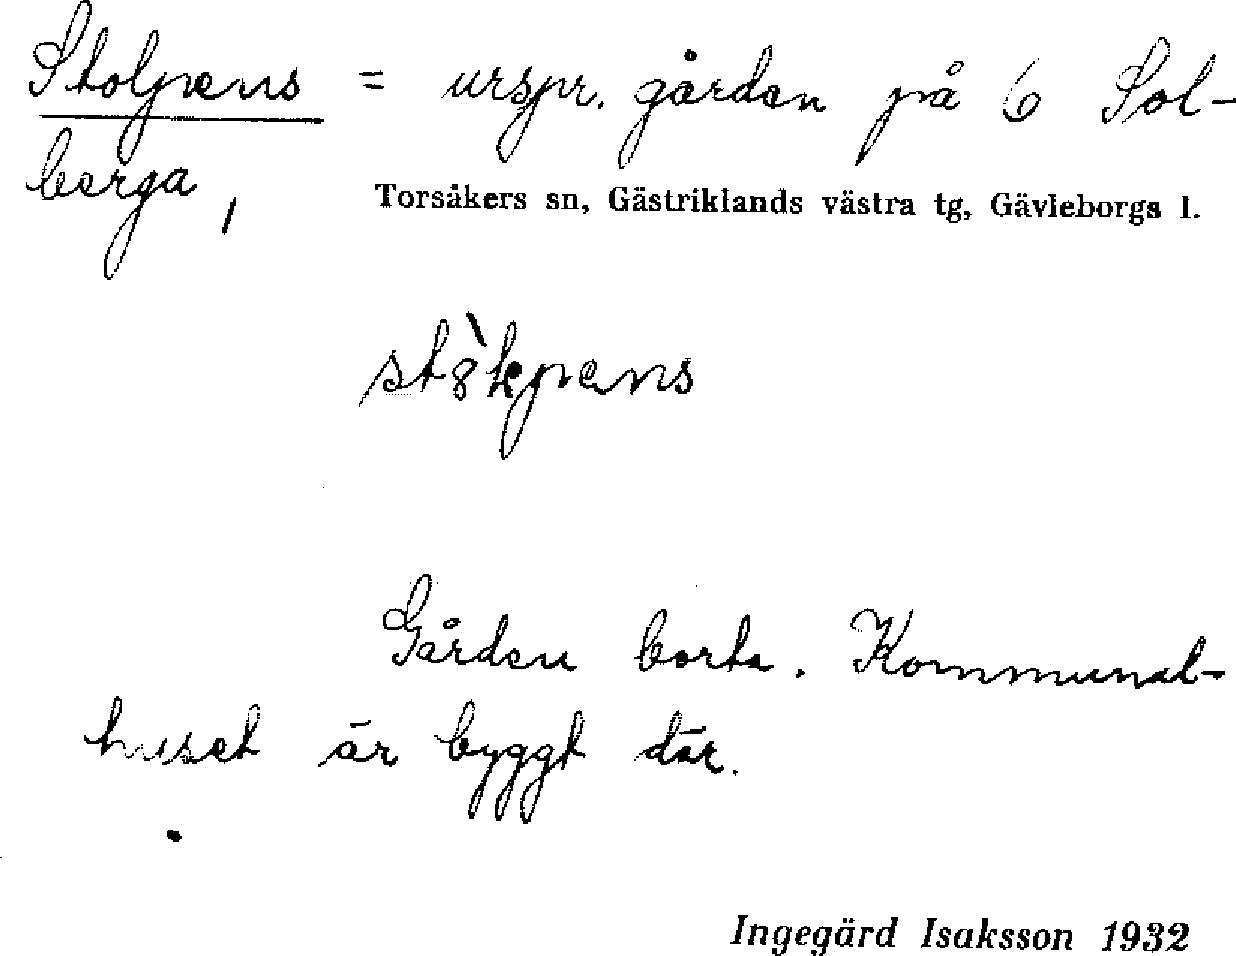 Stolpens = urspr. gården på 6 Sol-
berga,
Torsåkers sn, Gästriklands västra tg, Gävleborgs l.
Gården borta. Kommunal-
huset är byggt där.
Ingegärd Isaksson 1932